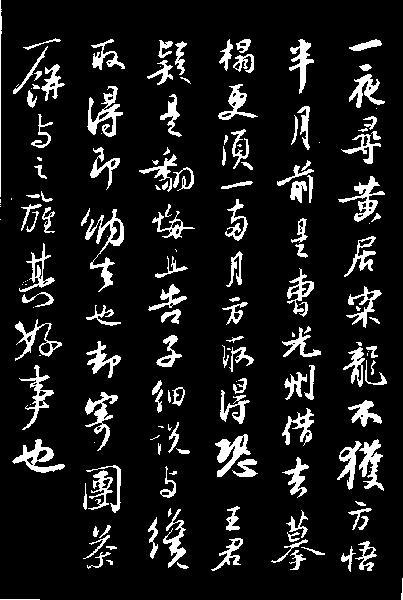 一夜尋黄居寀龍不獲方悟
半月前是曹光州借去摹
搨更須一兩月方取得恐王君
疑是翻悔且告子細説与纔
取得即納去也却寄團茶
一餅与之旌其好事也